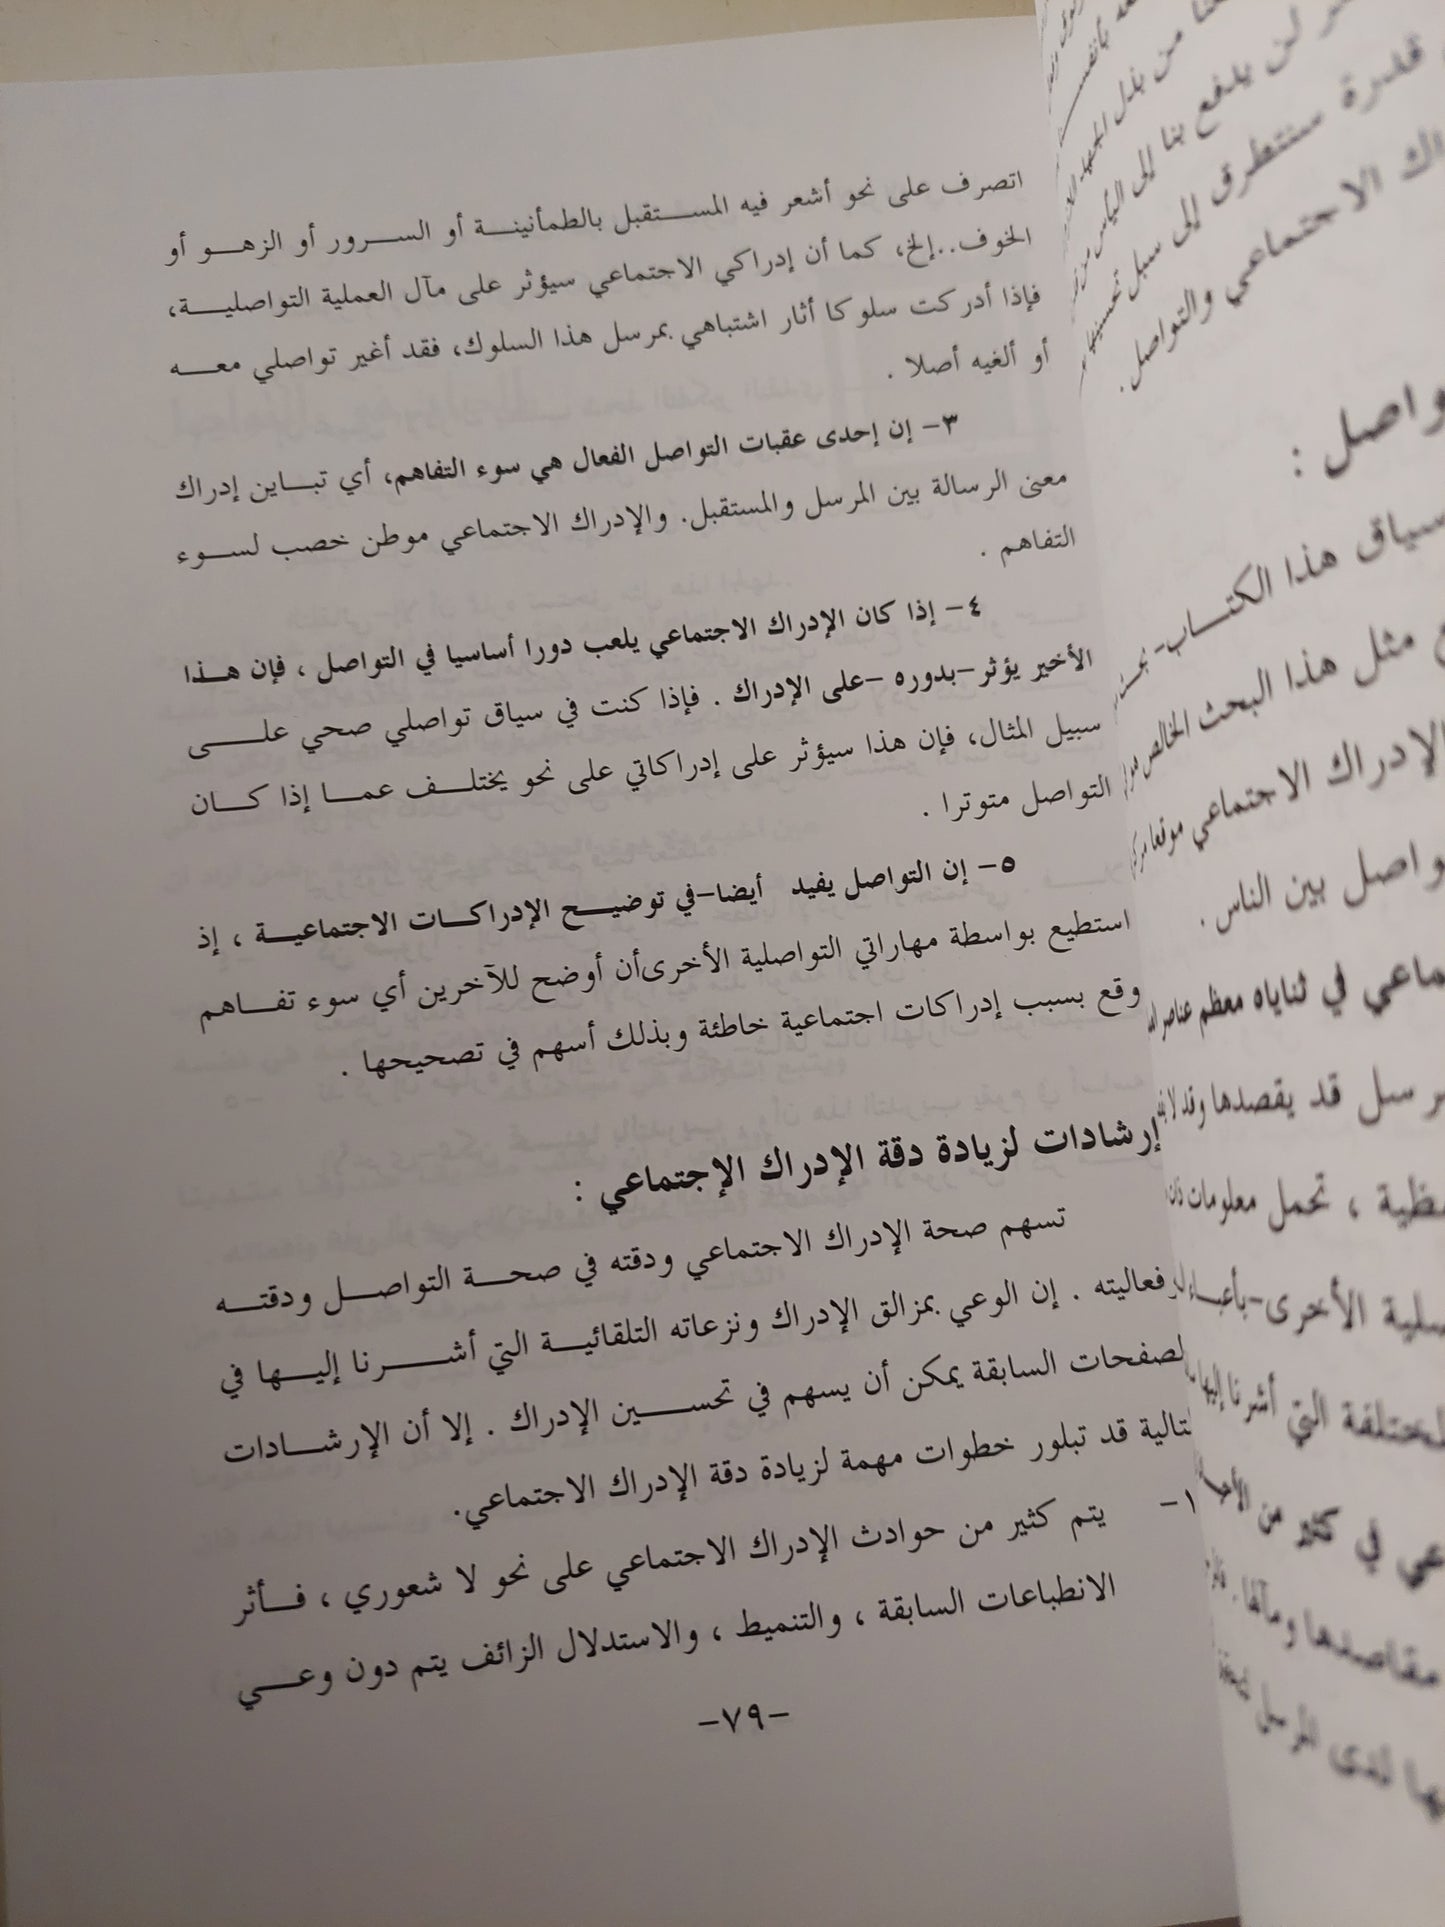 اتصرف على نحو أشعر فيه المستقبل بالطمأنينة أو السرور أو الزهو أو
الخوف..إلخ، كما أن إدراكي الاجتماعي سيؤثر على مآل العملية التواصلية،
فإذا أدركت سلوكا أثار اشتباهي بمرسل هذا السلوك، فقد أغير تواصلي معه
أو ألغيه أصلا .
٣- إن إحدى عقبات التواصل الفعال هي سوء التفاهم، أي تباين إدراك
معنى الرسالة بين المرسل والمستقبل. والإدراك الاجتماعي موطن خصب لسوء
التفاهم .
٤- إذا كان الإدراك الاجتماعي يلعب دورا أساسيا في التواصل ، فإن هذا
الأخير يؤثر-بدوره -على الإدراك . فإذا كنت في سياق تواصلي صحي على
سبيل المثال، فإن هذا سيؤثر على إدراكاتي على نحو يختلف عما إذا كان
التواصل متوترا .
٥- إن التواصل يفيد أيضا-في توضيح الإدراكات الاجتماعية ، إذ
استطيع بواسطة مهاراتي التواصلية الأخرىأن أوضح للآخرين أي سوء تفاهم
وقع بسبب إدراكات اجتماعية خاطئة وبذلك أسهم في تصحيحها .
إرشادات لزيادة دقة الإدراك الإجتماعي :
تسهم صحة الإدراك الاجتماعي ودقته في صحة التواصل ودقته
وفعاليته . إن الوعي بمزالق الإدراك ونزعاته التلقائية التي أشرنا إليها في
لصفحات السابقة يمكن أن يسهم في تحسين الإدراك . إلا أن الإرشادات
لتالية قد تبلور خطوات مهمة لزيادة دقة الإدراك الاجتماعي.
١- يتم كثير من حوادث الإدراك الاجتماعي على نحو لا شعوري ، فأثر
الانطباعات السابقة ، والتنميط ، والاستدلال الزائف يتم دون وعي
-٧٩-
من بذل الجهد
لن يدفع بنا إلى اليأس من
قدرة سنتطرق إلى سبل تحسينها
الاجتماعي والتواصل.
واصل :
سياق هذا الكتاب-
مثل هذا البحث الخالص
الإدراك الاجتماعي موقعا
واصل بين الناس .
ماعي في ثناياه معظم عناصر
رسل قد يقصدها وقد لا
ظية ، تحمل معلومات
صلية الأخرى-بأعباء
لمختلفة التي أشرنا إليها
عي في كثير من
مقاصدها ومآلها .
ها لدى المرسل